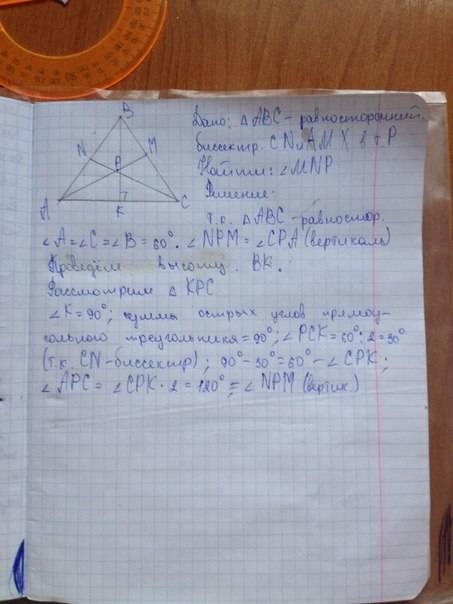 B
N
M
P
A
K
C
Дано: △ABC - равносторонний,
биссектр. CN и AM X в т.P
Найти: ∠MNP
Решение:
Т.о. △ABC - равностор.
∠A=∠C=∠B=60°. ∠NPM=∠CPA (вертикал)
Проведём высоту BK.
Рассмотрим △ KPC
∠K=90°; суммы острых углов прямоу-
гольного треугольника=90°; ∠PCK=60°:2=30°
(т.к. CN-биссектр); 90°-30°=60°-∠CPK;
∠APC=∠CPK·2=120°=∠NPM (вертик)